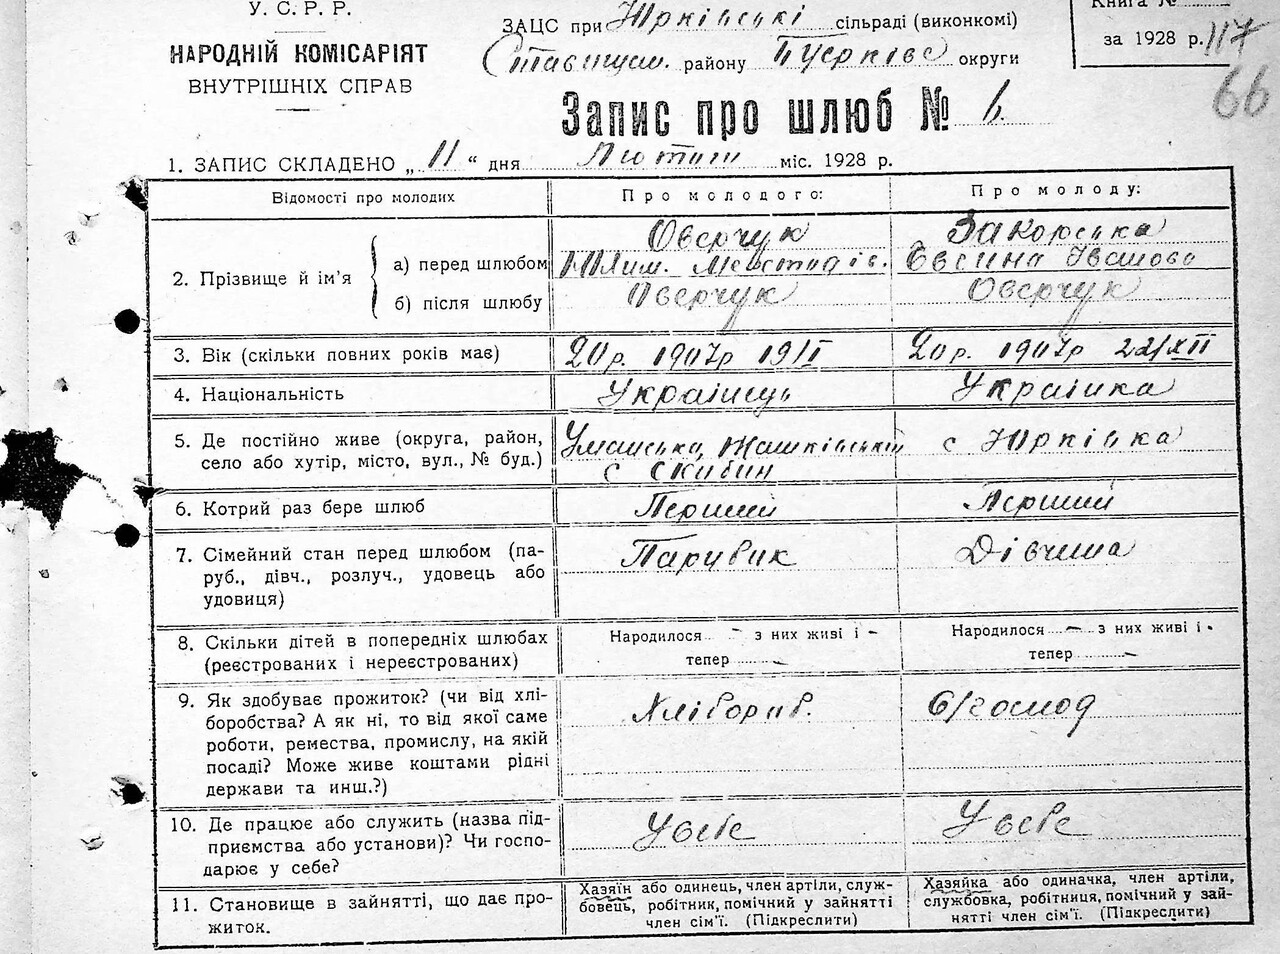 У. С. Р. Р.
НАРОДНІЙ КОМІСАРІЯТ
ВНУТРІШНІХ СПРАВ
ЗАЦС при Юрківські сільраді (виконкомі)
Ставищан. району округи
Книга №
за 1928 р. 117
66
Запис про шлюб № 6.
1. ЗАПИС СКЛАДЕНО „ 11 “ дня Лютиш міс. 1928 р.
Відомості про молодих
Про молодого:
Про молоду:
2. Прізвище й ім’я
а) перед шлюбом
Оверчук
Закорська
Івашова
б) після шлюбу
Оверчук
Оверчук
3. Вік (скільки повних років має)
20 р. 1907 р 19/I
20 р. 1907 р 22/XII
4. Національність
Українець
Українка
5. Де постійно живе (округа, район,
село або хутір, місто, вул., № буд.)
Уманська, Жашківський
с Скибин
с Юрківка
6. Котрий раз бере шлюб
Перший
Перший
7. Сімейний стан перед шлюбом (па-
руб., дівч., розлуч., удовець або
удовиця)
Парубик
Дівчина
8. Скільки дітей в попередніх шлюбах
(реєстрованих і нереєстрованих)
Народилося - з них живі і -
тепер -
Народилося - з них живі і -
тепер -
9. Як здобуває прожиток? (чи від хлі-
боробства? А як ні, то від якої саме
роботи, ремества, промислу, на якій
посаді? Може живе коштами рідні
держави та инш.?)
Хлібороб.
б/господ
10. Де працює або служить (назва під-
приємства або установи)? Чи госпо-
дарює у себе?
У себе
У себе
11. Становище в зайнятті, що дає про-
житок.
Хазяїн або одинець, член артіли, служ-
бовець, робітник, помічний у зайнятті
член сім’ї. (Підкреслити)
Хазяйка або одиначка, член артіли,
службовка, робітниця, помічний у зай-
нятті член сім’ї. (Підкреслити)